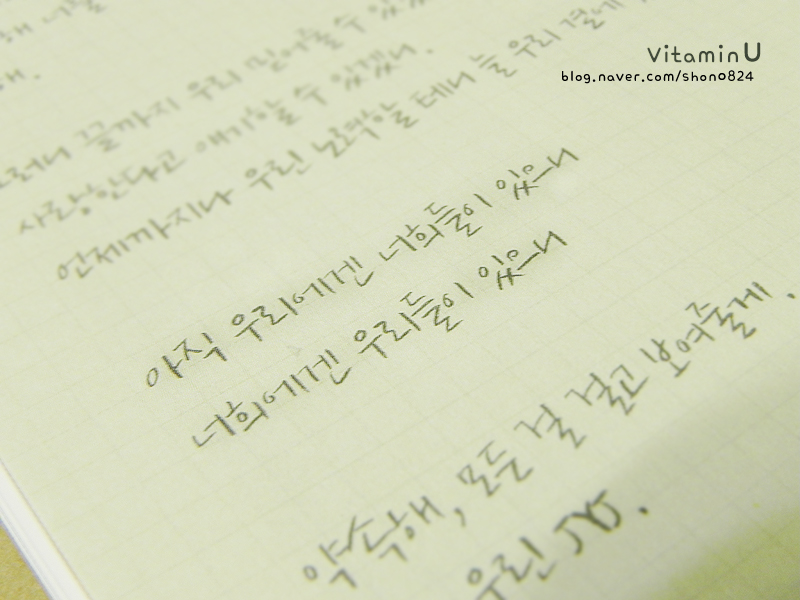 Vitamin U
blog.naver.com/shono824
해.
끝까지 우리 믿어줄 수
사랑한다고 얘기할 수 있겠니.
언제까지나 우린 노력할 테니 늘 우리 곁에
아직 우리에겐 너희들이 있으니
너희에겐 우리들이 있으니
약속해, 모든 걸 걸고 보여줄게.
우린 JYJ.